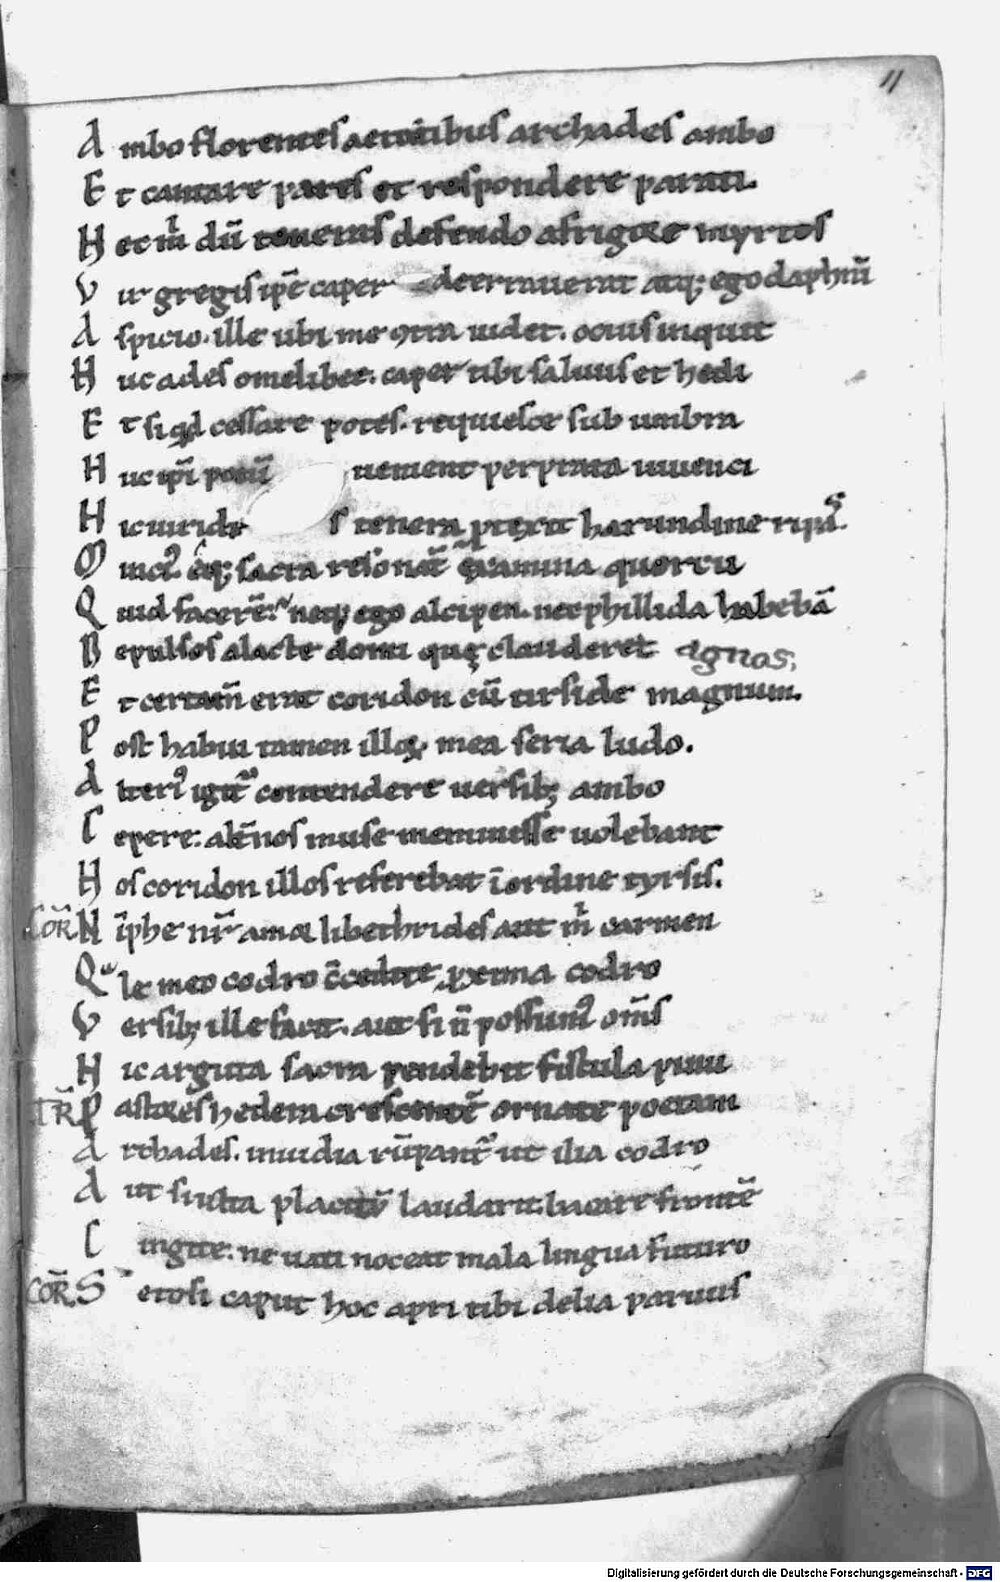 11
A mbo florentes aetatibus archades ambo
E t cantare pares et respondere parati.
H ec m̄ dū teneras defendo a frigore myrtos
V ir gregis ip̄e caper deerrauerat atq; ego daphnī
A spicio. ille ubi me ꝯtra uidet. ocius inquit
H uc ades o melibee. caper tibi saluus et hedi
E t si qd cessare potes. requiesce sub umbra
H uc ip̄i potū uenient per prata iuuenci
H ic uiridis tenera p̄texit harundine ripas.
M inci'. eq; sacra resonāt examina quercu
Q uid facerē? neq; ego alcipen. nec phillida habebā
D epulsos a lacte domi quę clauderet agnos;
E t certam̄ erat coridon cū tirside magnum.
P ost habui tamen illoꝝ mea seria ludo.
A lterī igit' contendere uersib; ambo
C epere. alt̄nos muse meminisse uolebant
H os coridon illos referebat ī ordine tyrsis.
COR̄ N īphe nr̄ amor libethrides aut m̄ carmen
Q le meo codro c̄cedite, ꝓxima codro
V ersib; ille facit. aut si n̄ possum' om̄s
H ic arguta sacra pendebit fistula pinu
TR̄ P astores hedera crescentē ornate poetam
A rchades. inuidia rūpant' ut ilia codro
A ut si ultra placitū laudarit. bacare frontē
C ingite. ne uati noceat mala lingua futuro
COR̄ S etosi caput hoc apri tibi delia paruus
Digitalisierung gefördert durch die Deutsche Forschungsgemeinschaft - DFG